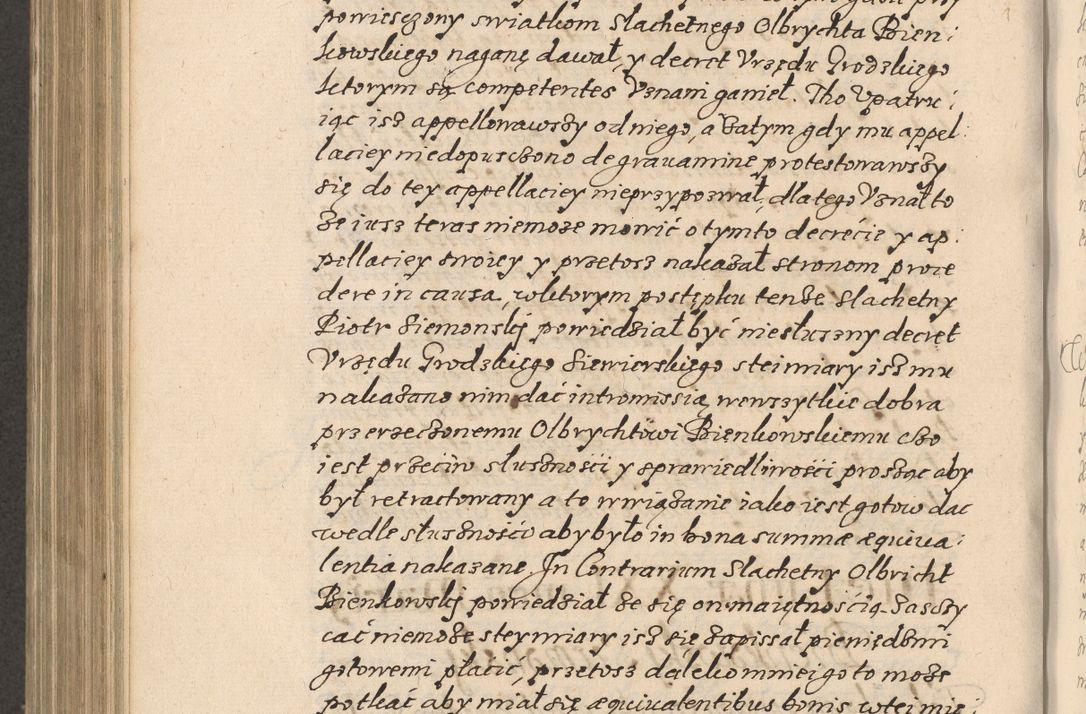 powiesczony swiatkom Slachetnego Olbrychta Bien:
kowskiego naganę dawał, y decret Vrzędu Grodzkiego
ktorym competentes Vznani ganieł. Tho Vpatru:
iąc isz appellowawszy od niego, a zatym gdy mu appel:
laciey niedopusczono de grauamine protestowawszy
się do tey appellaciey nieprzypozwał, dlatego Vznał to
że iusz teras niemoże mowić o tymto decrecie y ap:
pellaciey swoiey y przetosz nakazał stronom proce
dere in causa, wktorym postępku tenże slachetny
Piotr Siemonskj powiedział być niesłuszny decret
Vrzędu Grodzkiego Siewierskiego stei miary isz mu
nakazano nim dać intromissią wewszytkie dobra
przerzeczonemu Olbrychtowi Bienkowskiemu czo
iest przeciw słusznosści y sprawiedliwosści prosząc aby
był retractowany a to wwiązanie iako iest gotow dac
wedle słusznośći aby było in bona summæ æquiua:
lentia nakazane. In Contrarium Slachetny Olbricht
Bienkowskj powiedział że się on maiętnoscią zasczy
cać niemoże stey miary isz się zapissał pieniędzmi
gotowemi płacić, przetosz daleko mniei go to może
potkać aby miał się æquiualentibus bonis wtei mie: